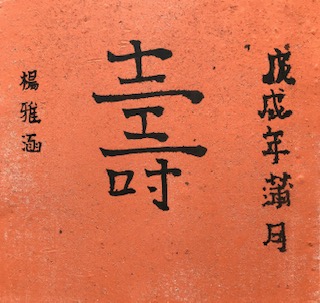 戊戌年蒲月
壽
楊雅涵